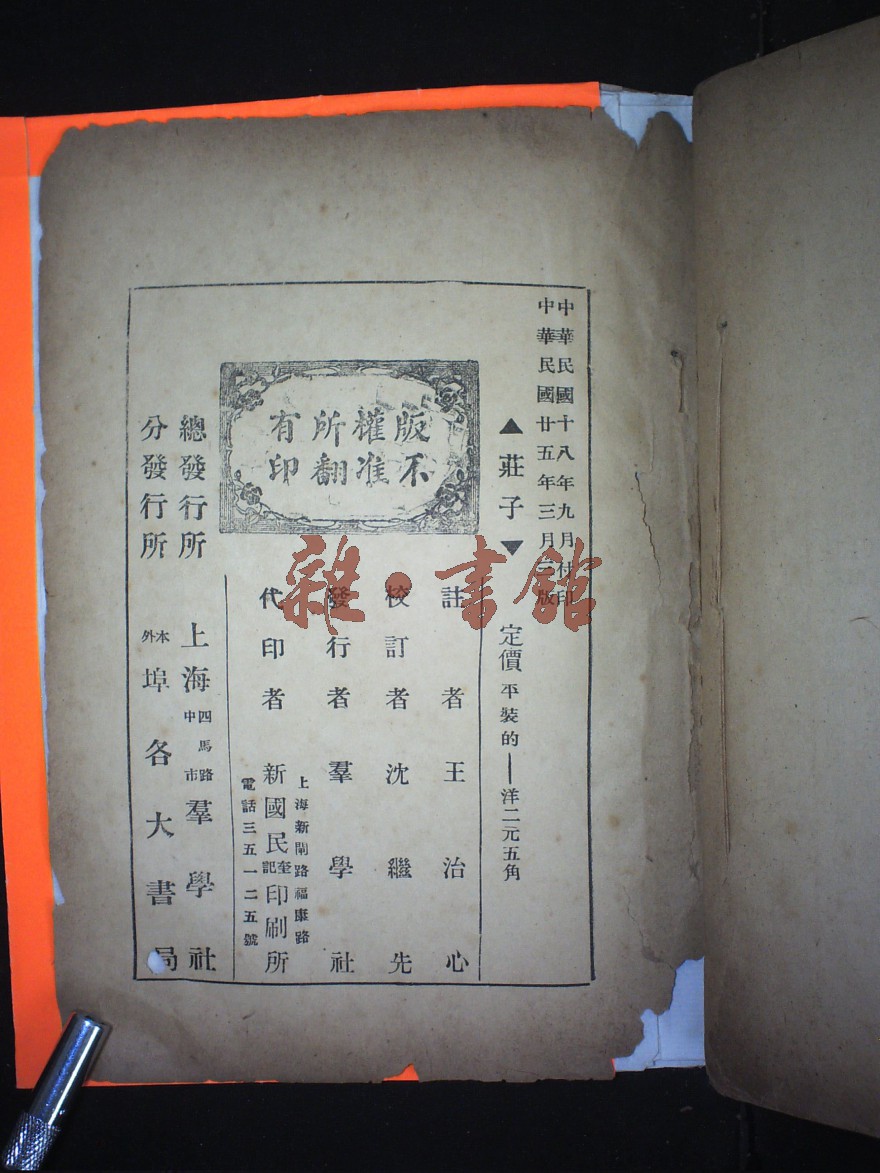 中華民國十八年九月付印
中華民國廿五年三月三版
▲莊子▼ 定價 平裝的——洋二元五角
版權所有
不准翻印
註者王治心
校訂者沈繼先
發行者羣學社
代印者 新國民奎記印刷所
上海新閘路福康路
電話三五一二五號
總發行所 上海四馬路中市羣學社
分發行所 本外埠各大書局
雜·書館